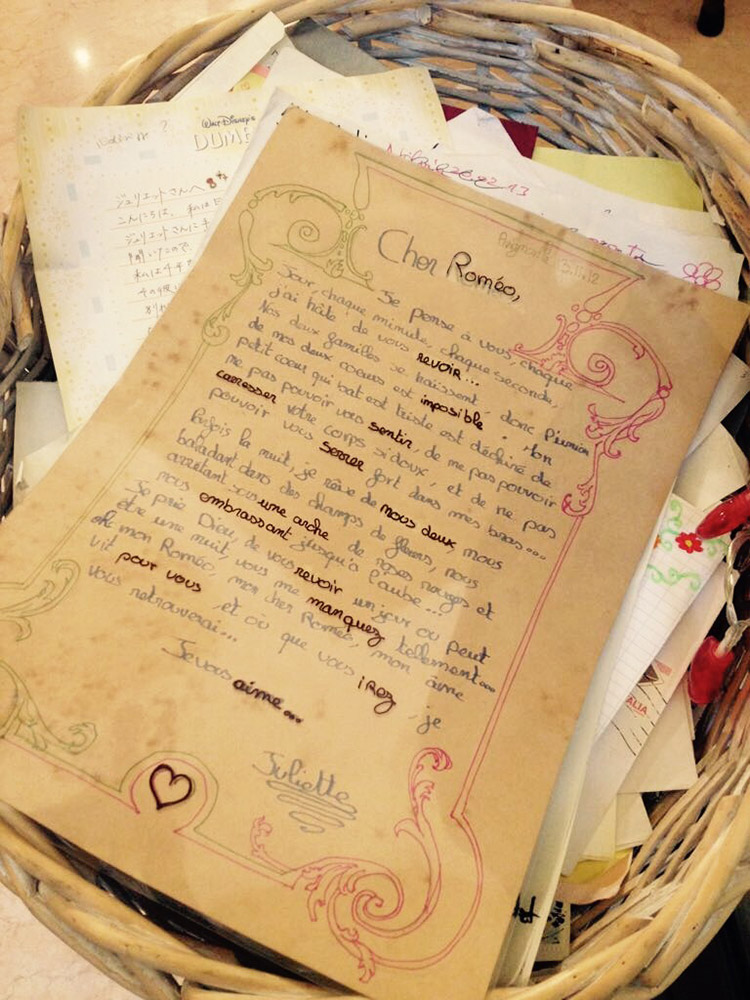 Walt Disney's
DUMB
ジュリエットさんへ
こんにちは。私は
ジュリエットさんに
聞いたので、
3.11.12
Cher Roméo,
Je pense à vous, chaque
Jour, chaque minute, chaque seconde,
j'ai hâte de vous revoir...
Nos deux familles se haïssent, donc l'union
de nos deux coeurs est imposible. Mon
petit coeur qui bat est triste est déchiré de
ne pas pouvoir vous sentir, de me pas pouvoir
caresser votre corps si doux, et de ne pas
pouvoir vous serrer fort dans mes bras...
Parfois la nuit, je rêve de nous deux nous
baladant dans des champs de fleurs, nous
arrêtant sous une arche de roses rouges et
nous embrassant jusqu'à l'aube...
Je prie Dieu, de vous revoir un jour ou peut
être une nuit, vous me manquez tellement...
oh mon Roméo, mon cher Roméo, mon âme
vit pour vous et où que vous irez, je
vous retrouverai...
Je vous aime...
Juliette
ALIA